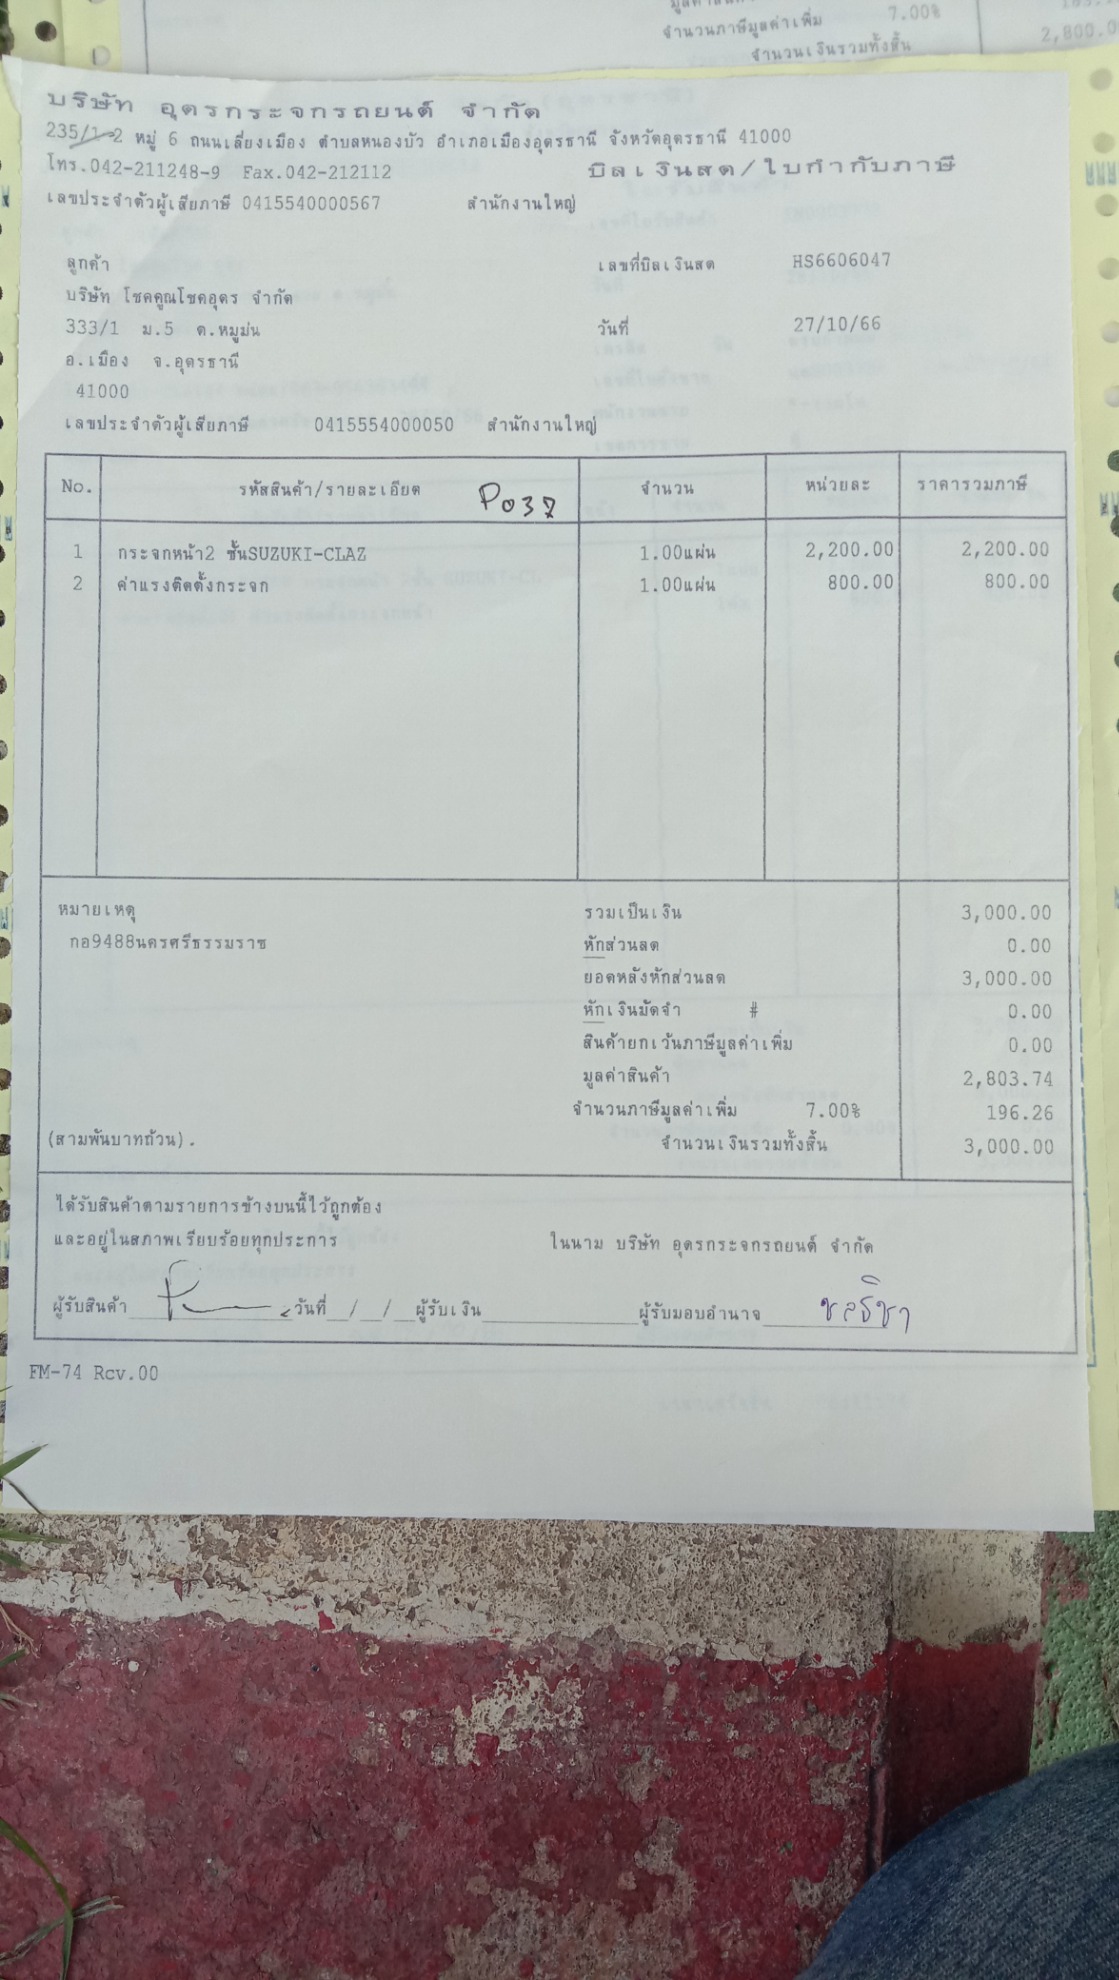 จำนวนภาษีมูลค่าเพิ่ม 7.00%
จำนวนเงินรวมทั้งสิ้น
บริษัท อุดรกระจกรถยนต์ จำกัด
235/1-2 หมู่ 6 ถนนเลี่ยงเมือง ตำบลหนองบัว อำเภอเมืองอุดรธานี จังหวัดอุดรธานี 41000
โทร.042-211248-9 Fax.042-212112 บิลเงินสด/ใบกำกับภาษี
เลขประจำตัวผู้เสียภาษี 0415540000567 สำนักงานใหญ่
ลูกค้า เลขที่บิลเงินสด HS6606047
บริษัท โชคคูณโชคอุดร จำกัด
333/1 ม.5 ต.หมูม่น วันที่ 27/10/66
อ.เมือง จ.อุดรธานี
41000
เลขประจำตัวผู้เสียภาษี 0415554000050 สำนักงานใหญ่
No. รหัสสินค้า/รายละเอียด P037 จำนวน หน่วยละ ราคารวมภาษี
1 กระจกหน้า2 ชั้นSUZUKI-CLAZ 1.00แผ่น 2,200.00 2,200.00
2 ค่าแรงติดตั้งกระจก 1.00แผ่น 800.00 800.00
หมายเหตุ รวมเป็นเงิน 3,000.00
กอ9488นครศรีธรรมราช หักส่วนลด 0.00
ยอดหลังหักส่วนลด 3,000.00
หักเงินมัดจำ # 0.00
สินค้ายกเว้นภาษีมูลค่าเพิ่ม 0.00
มูลค่าสินค้า 2,803.74
จำนวนภาษีมูลค่าเพิ่ม 7.00% 196.26
(สามพันบาทถ้วน). จำนวนเงินรวมทั้งสิ้น 3,000.00
ได้รับสินค้าตามรายการข้างบนนี้ไว้ถูกต้อง
และอยู่ในสภาพเรียบร้อยทุกประการ ในนาม บริษัท อุดรกระจกรถยนต์ จำกัด
ผู้รับสินค้า วันที่ / / ผู้รับเงิน ผู้รับมอบอำนาจ ชลธิชา
FM-74 Rcv.00